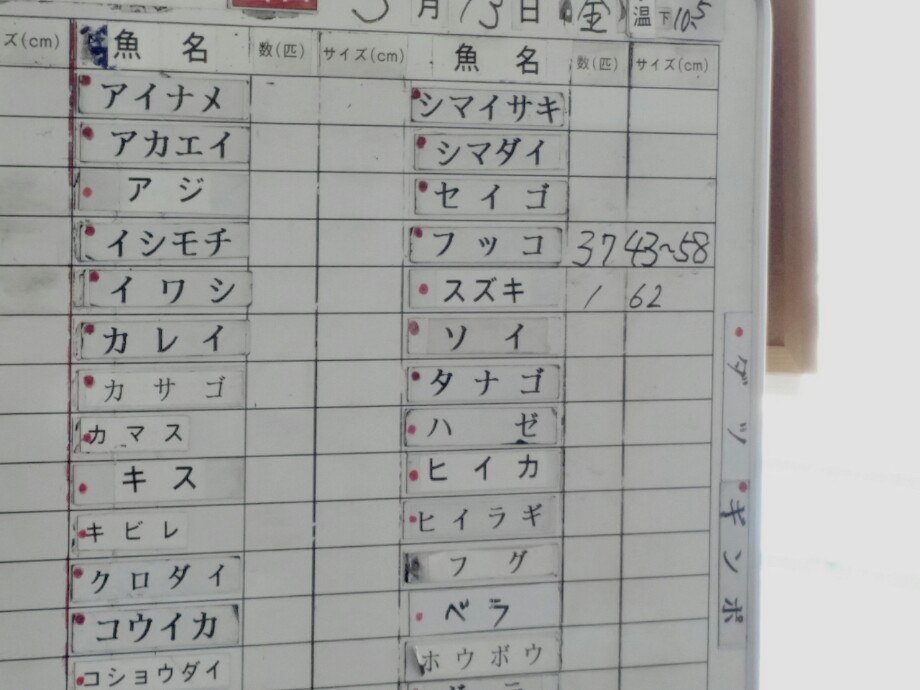 月13日(金) 温 下10.5
ズ(cm) 魚名 数(匹) サイズ(cm) 魚名 数(匹) サイズ(cm)
アイナメ シマイサキ
アカエイ シマダイ
アジ セイゴ
イシモチ フッコ 37 43~58
イワシ スズキ 1 62
カレイ ソイ
カサゴ タナゴ
カマス ハゼ
キス ヒイカ
キビレ ヒイラギ
クロダイ フグ
コウイカ ベラ
コショウダイ ホウボウ
ダツ
ギンポ